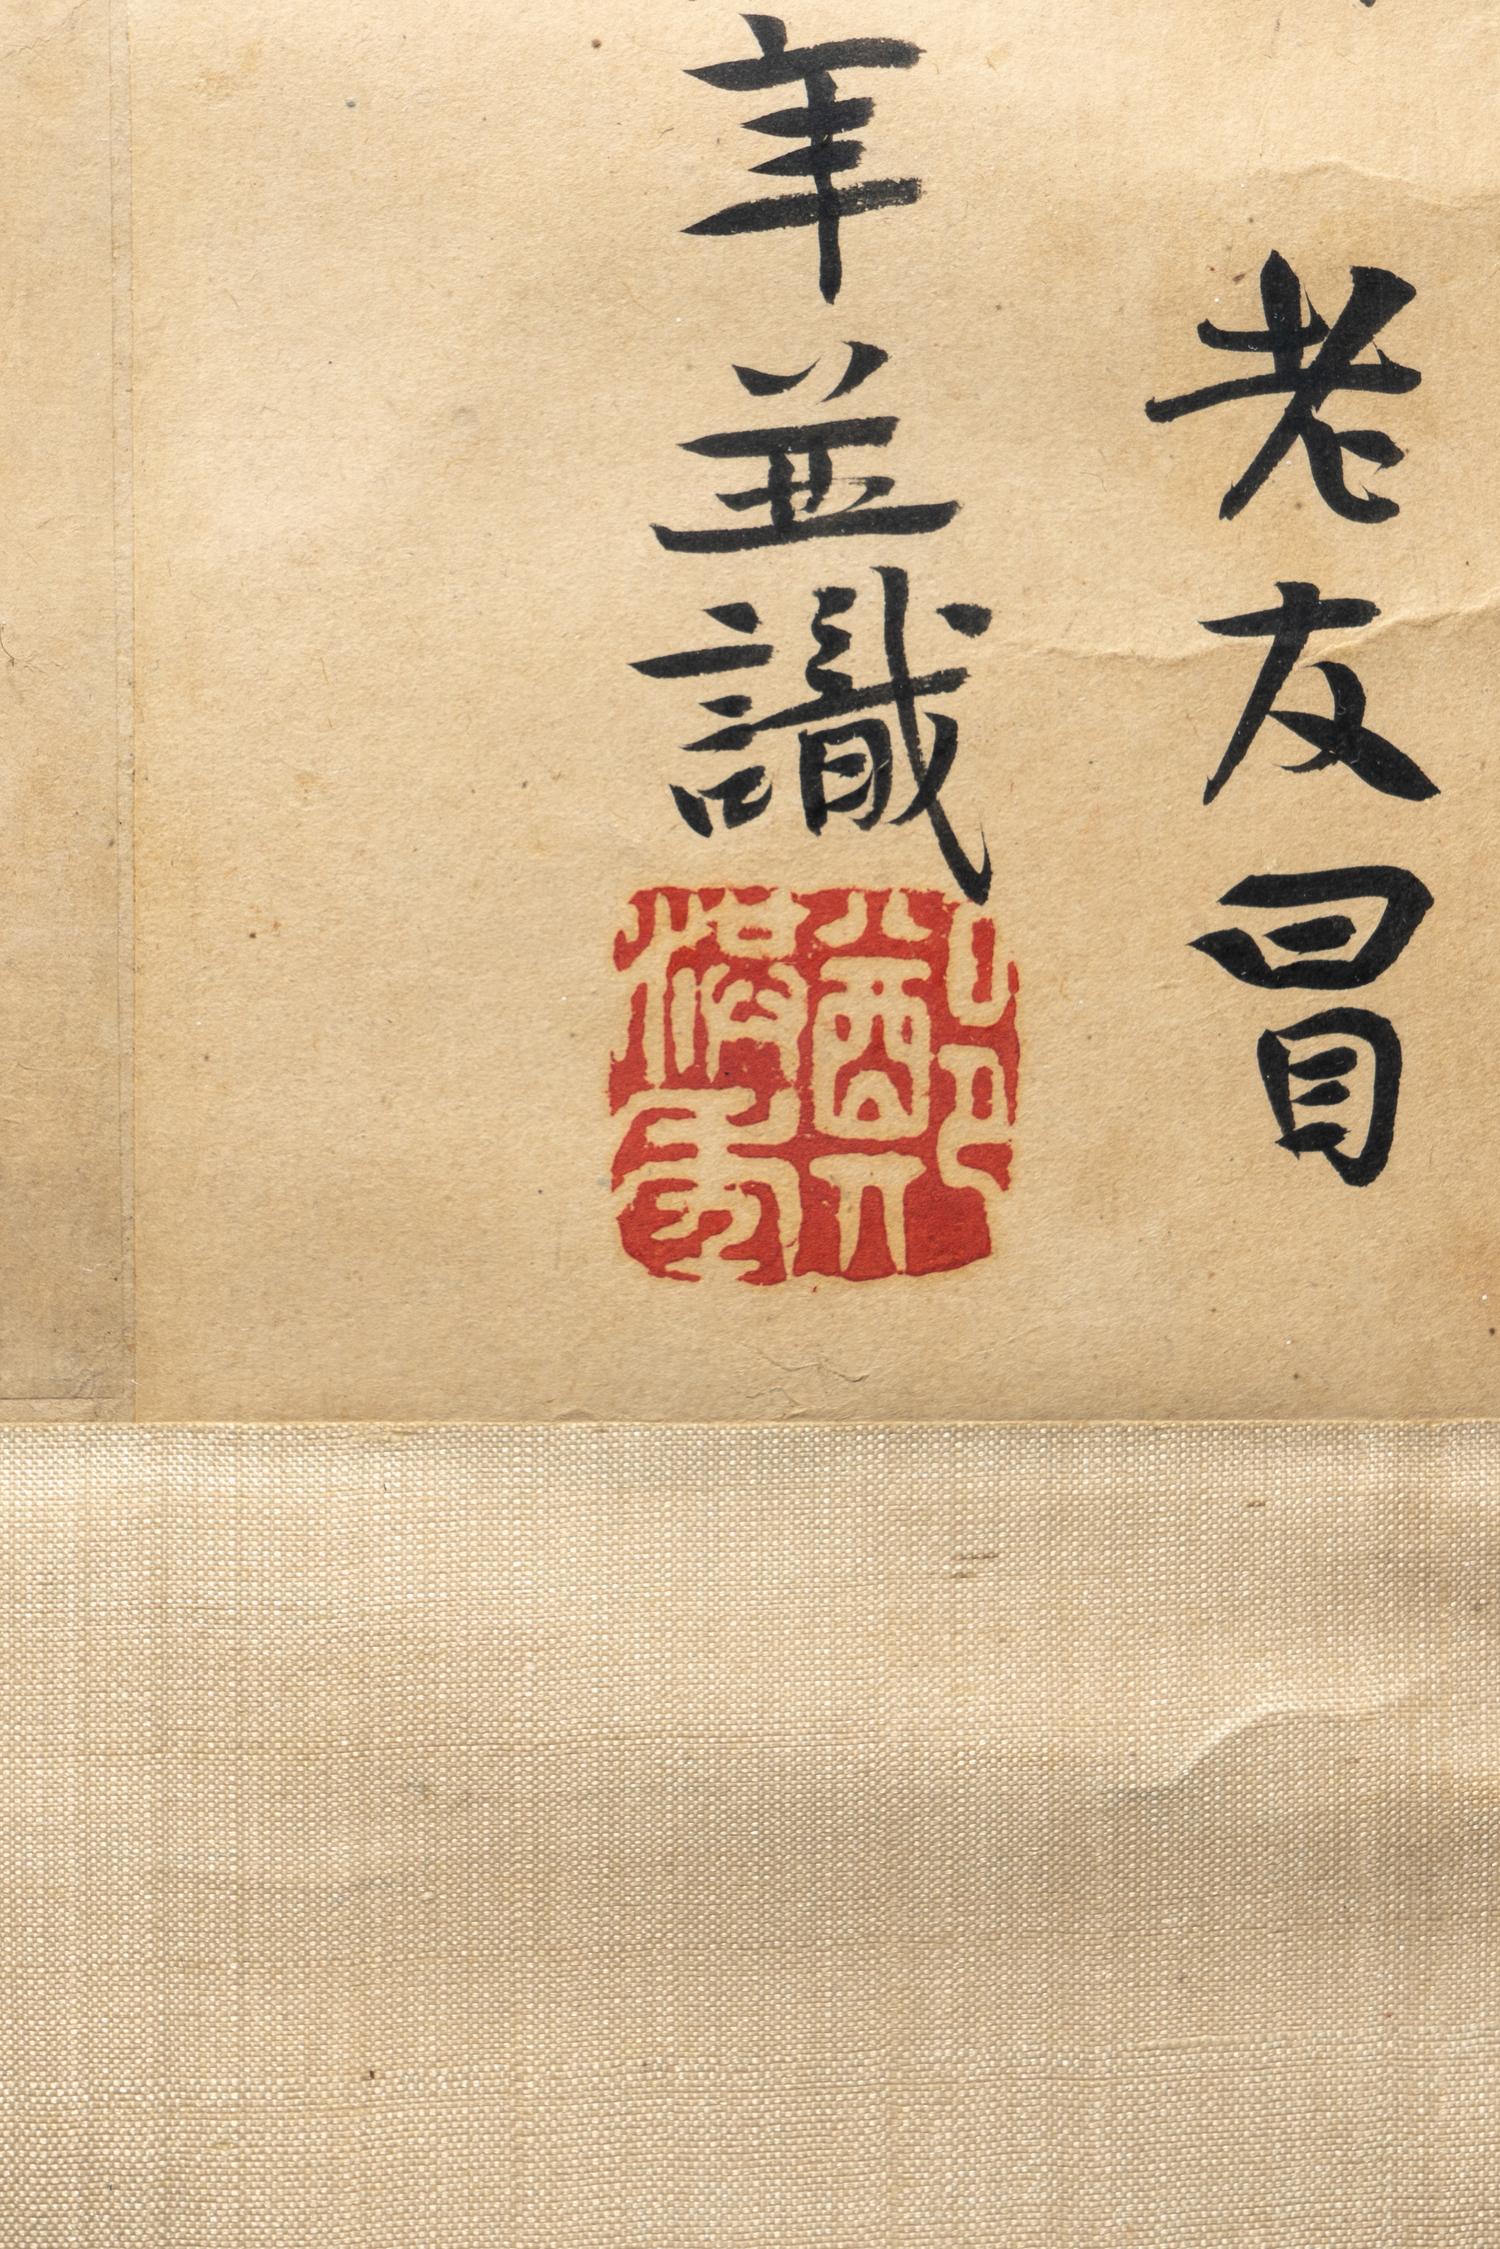 老友冒
年並識